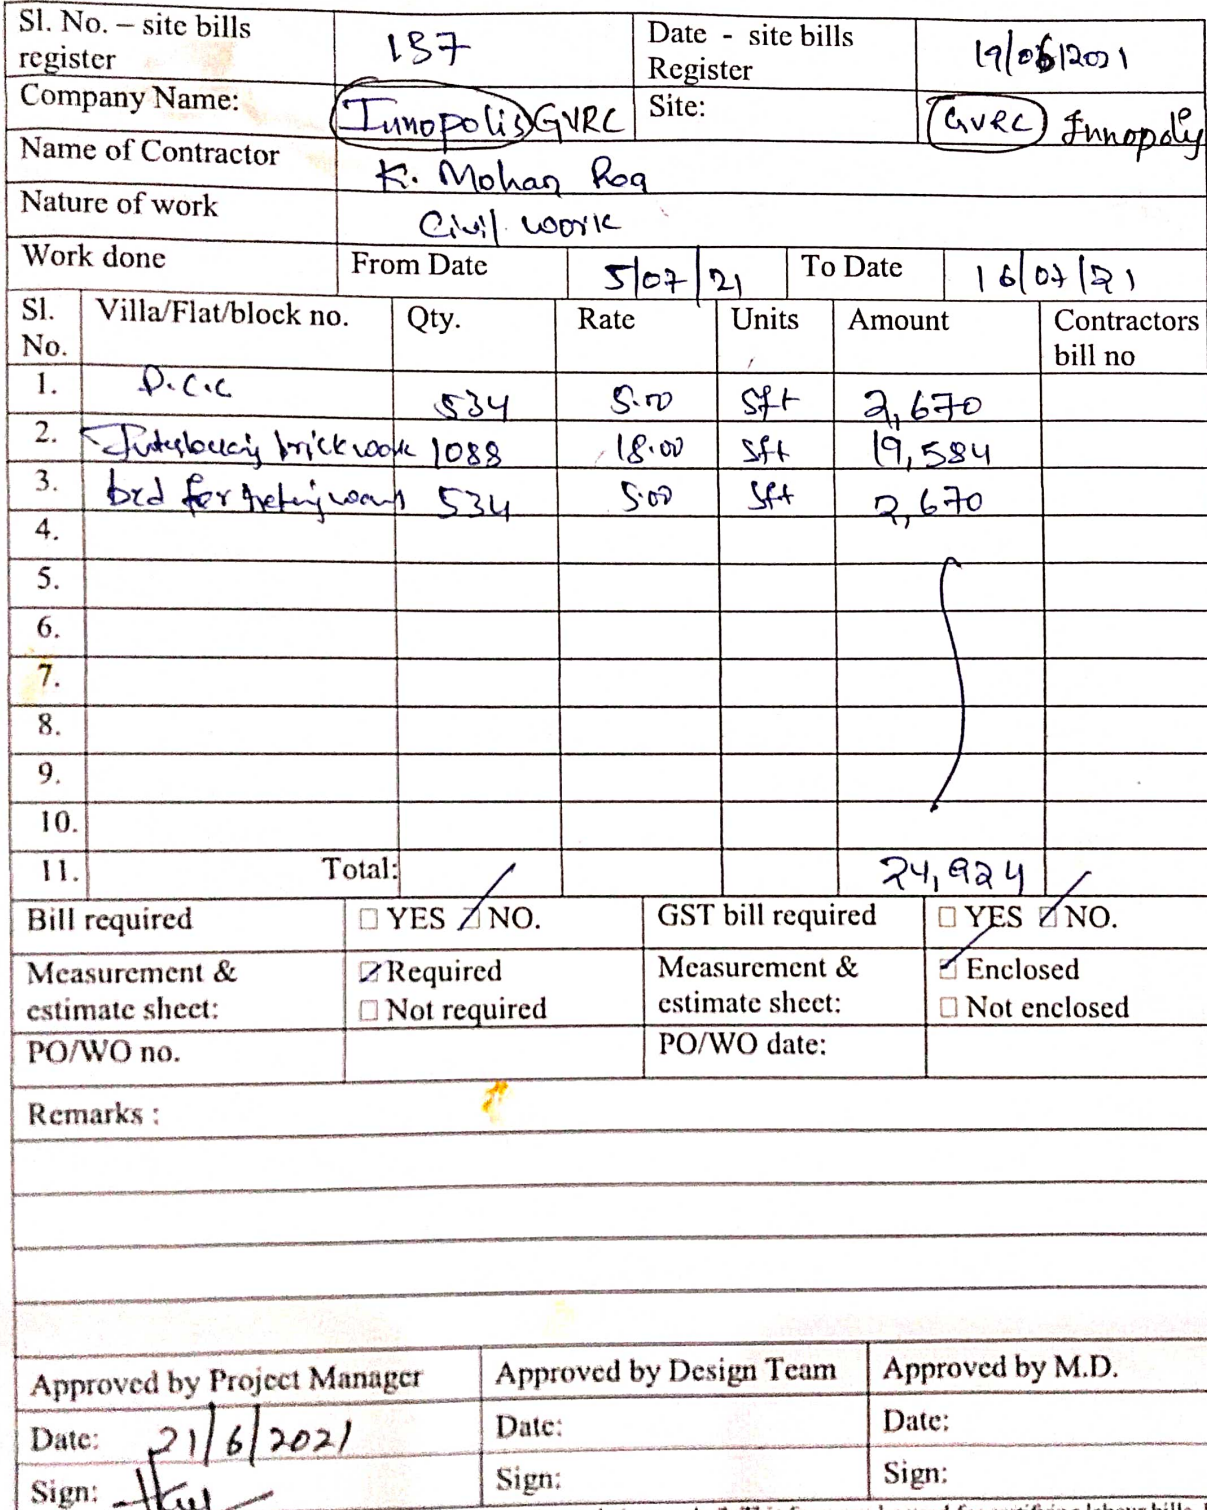 Sl. No. – site bills register 137 Date - site bills Register 19/06/2021
Company Name: Innopolis GVRC Site: GVRC Innopoly
Name of Contractor K. Mohan Rao
Nature of work Civil work
Work done From Date 5/07/21 To Date 16/07/21
Sl. No. Villa/Flat/block no. Qty. Rate Units Amount Contractors bill no
1. P.C.C 534 5.00 Sft 2,670
2. brick work 1088 18.00 Sft 19,584
3. bed for 534 5.00 Sft 2,670
4.
5.
6.
7.
8.
9.
10.
11. Total: 24,924
Bill required YES NO. GST bill required YES NO.
Measurement & estimate sheet: Required Not required Measurement & estimate sheet: Enclosed Not enclosed
PO/WO no. PO/WO date:
Remarks :
Approved by Project Manager Approved by Design Team Approved by M.D.
Date: 21/6/2021 Date: Date:
Sign: Sign: Sign: